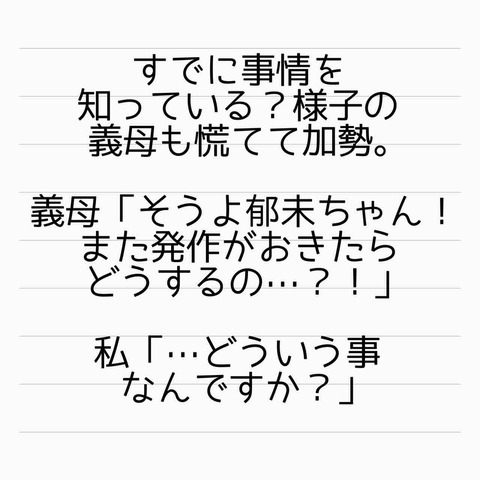 すでに事情を
知っている？様子の
義母も慌てて加勢。
義母「そうよ郁未ちゃん！
また発作がおきたら
どうするの…？！」
私「…どういう事
なんですか？」